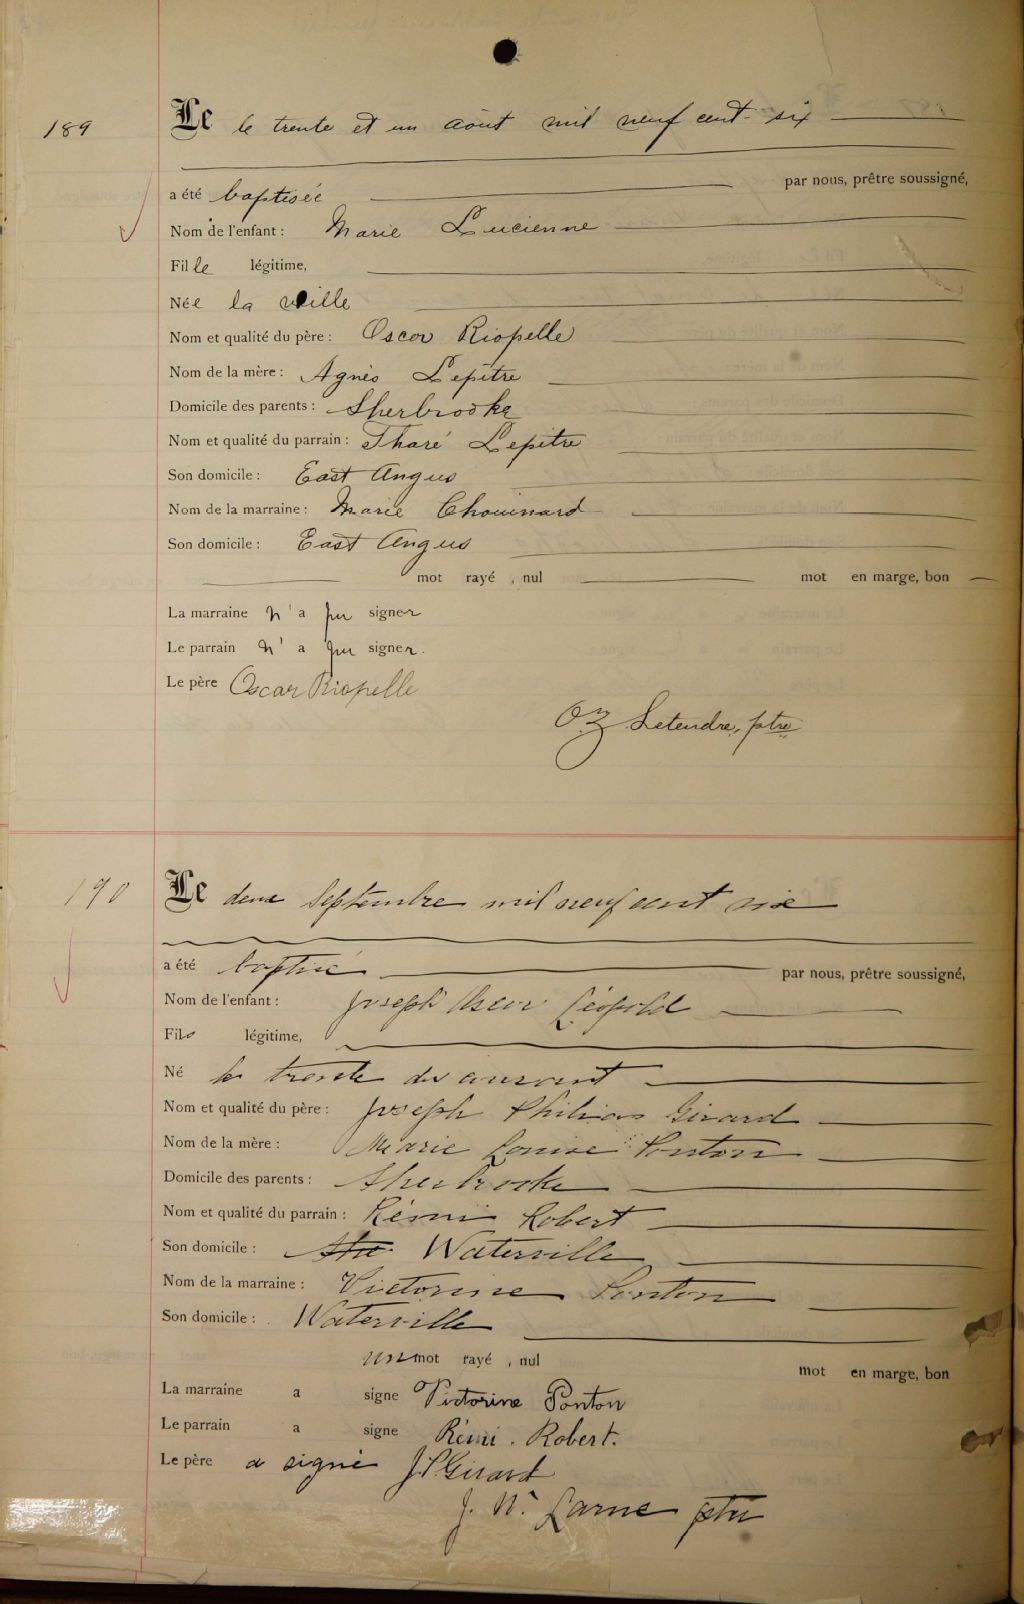 189
Le le trente et un août mil neuf cent six
a été baptisée par nous, prêtre soussigné,
Nom de l'enfant : Marie Lucienne
Fille légitime,
Née la veille
Nom et qualité du père : Oscar Riopelle
Nom de la mère : Agnès Lepitre
Domicile des parents : Sherbrooke
Nom et qualité du parrain : Tharé Lepitre
Son domicile : East Angus
Nom de la marraine : Marie Chouinard
Son domicile : East Angus
mot rayé , nul mot en marge, bon
La marraine n'a pu signer
Le parrain n'a pu signer.
Le père Oscar Riopelle
O. Z. Letendre, ptre
190
Le deux Septembre mil neuf cent six
a été baptisé par nous, prêtre soussigné,
Nom de l'enfant : Joseph Oscar Léopold
Fils légitime,
Né le trente du courant
Nom et qualité du père : Joseph Philias Girard
Nom de la mère : Marie Louise Ponton
Domicile des parents : Sherbrooke
Nom et qualité du parrain : Rémi Robert
Son domicile : Waterville
Nom de la marraine : Victorine Ponton
Son domicile : Waterville
un mot rayé , nul mot en marge, bon
La marraine a signe Victorine Ponton
Le parrain a signe Rémi . Robert.
Le père a signé J.P. Girard
J. ptre